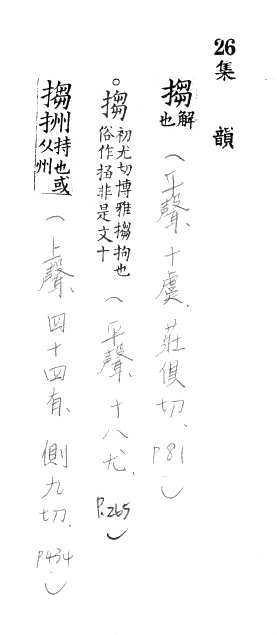 26
集韻
㨨解也（平聲、十虞、莊俱切、P81）
。㨨初尤切博雅㨨拘也俗作搊非是文十（平聲、十八尤、P.265）
㨨㧙持也或从州（上聲、四十四有、側九切、P434）